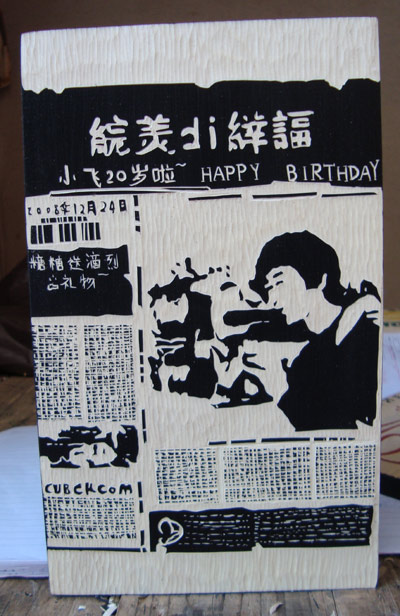 綄羙di緈諨
小飞20岁啦~ HAPPY BIRTHDAY
2008年12月24日
糖糖送滴
礼物~
CUBCKCOM